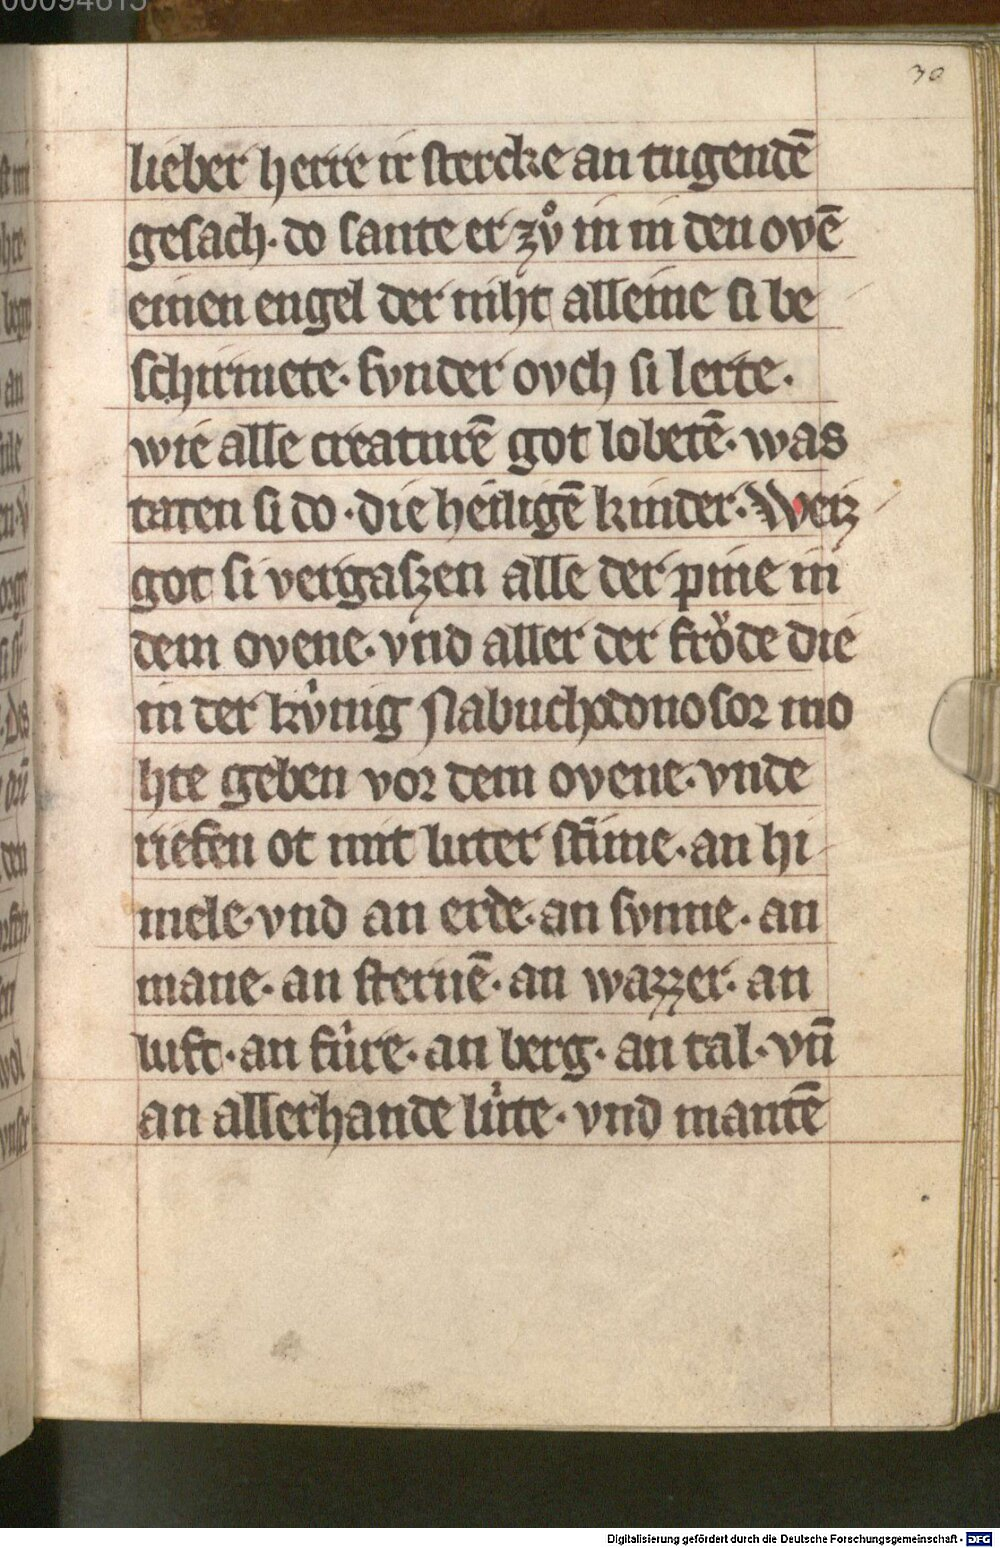 00094615
30
lieber herre ir stercke an tugendē
gesach · do sante er zvͦ in in den ovē
einen engel der niht alleine si be
schirmete · svnder ovch si lerte ·
wie alle creaturē got lobetē · was
taten si do · die heiligē kinder · Weiz
got si vergaszen alle der pine in
dem ovene · vnd aller der frǒde die
in der kv́nig Nabuchodonosor mo
hte geben vor dem ovene · vnde
riefen ot mit luter stim̄e · an hi
mele · vnd an erde · an svnne · an
mane · an sternē · an wazzer · an
luft · an fúre · an berg · an tal · vn̄
an allerhande lúte · vnd mantē
Digitalisierung gefördert durch die Deutsche Forschungsgemeinschaft - DFG